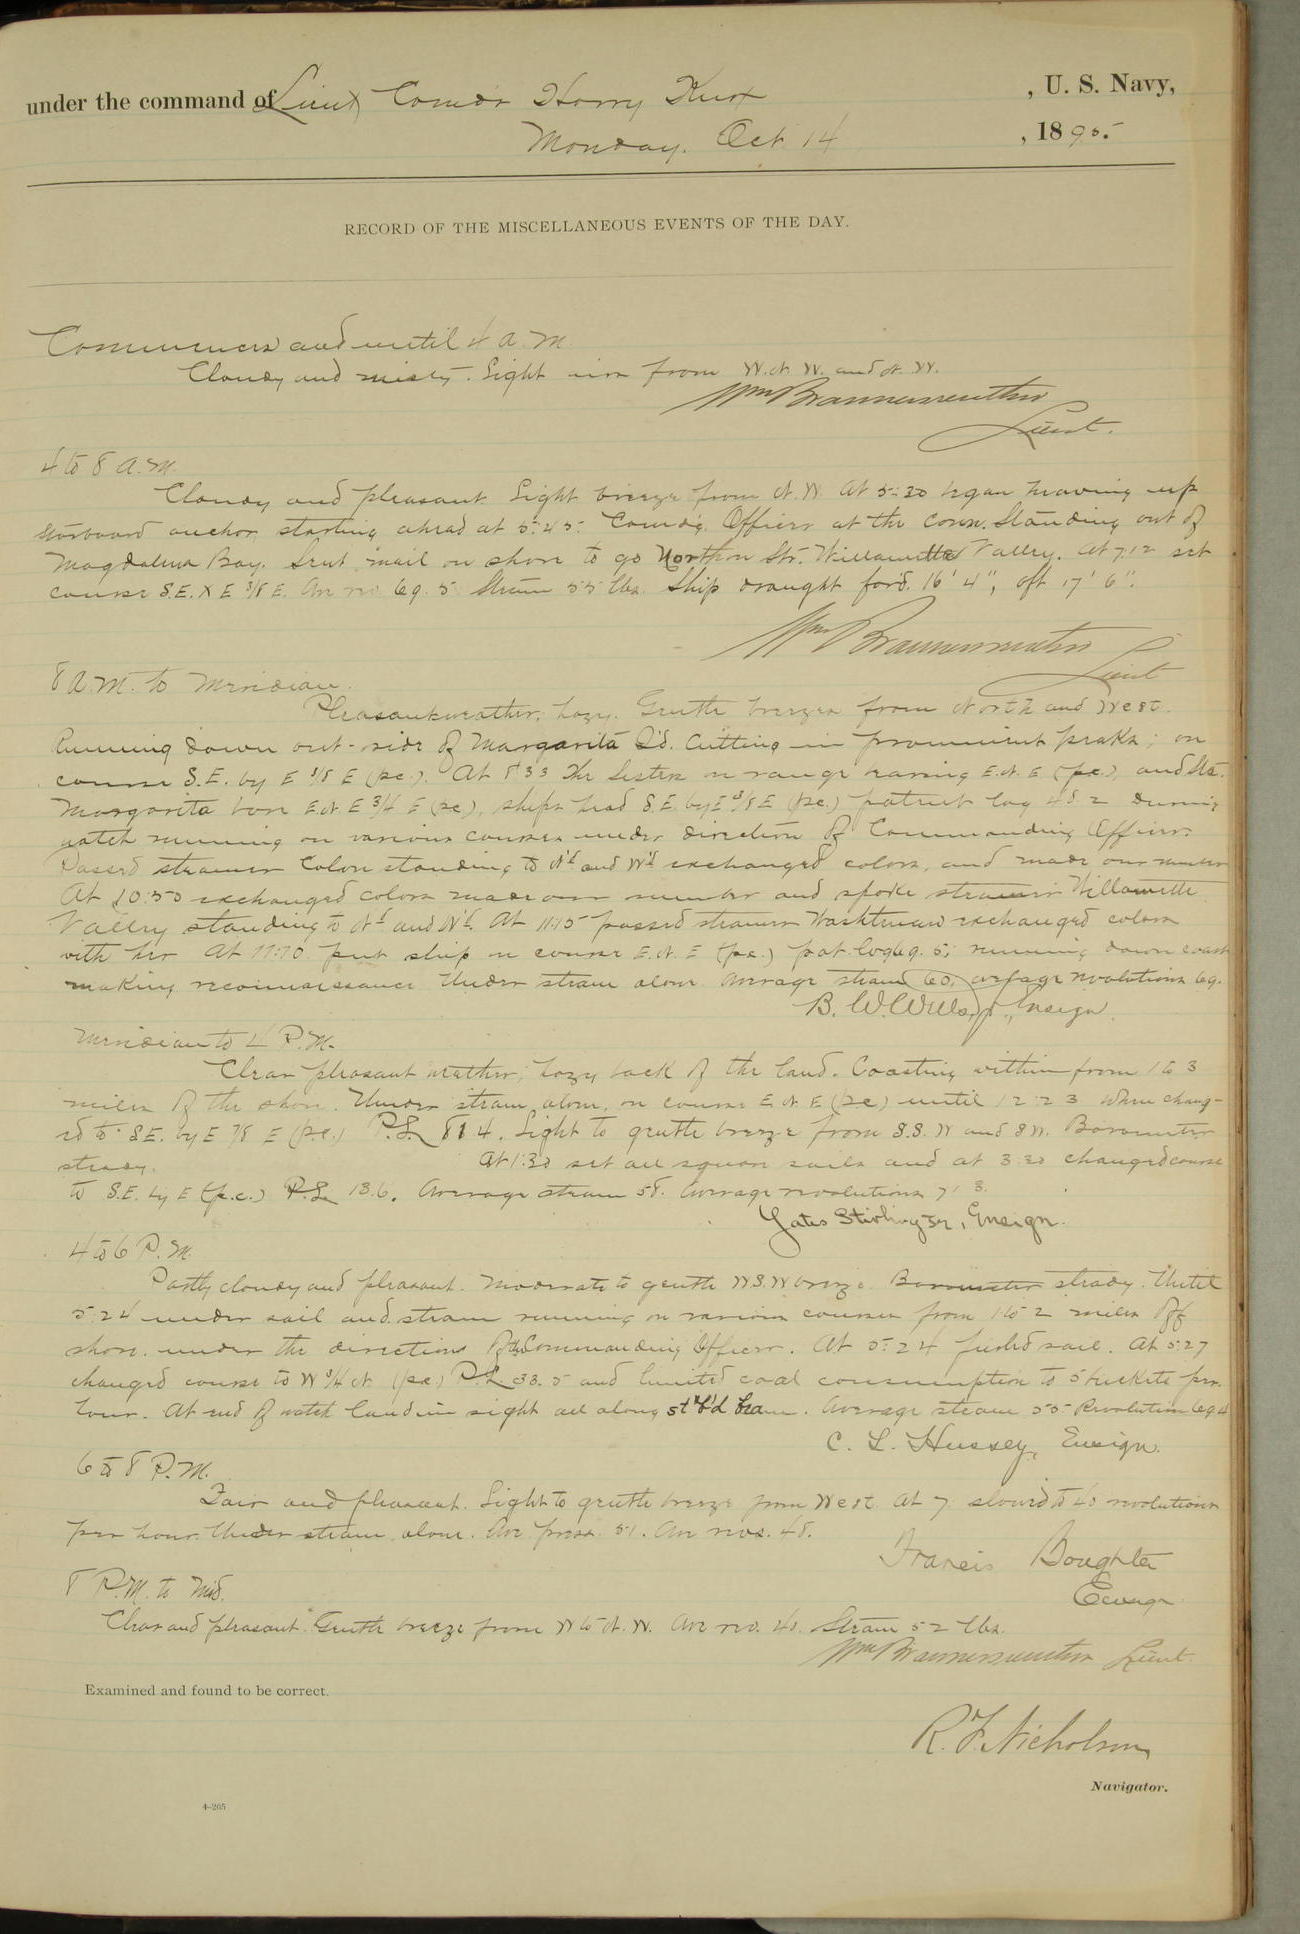 under the command of Lieut Comdr Harry Knox , U. S. Navy,
Monday. Oct 14 , 1895.
RECORD OF THE MISCELLANEOUS EVENTS OF THE DAY.
Commences and until 4 a.m.
Cloudy and misty. Light airs from W.N.W. and N.W.
Wm Braunersreuther
Lieut.
4 to 8 A.M.
Cloudy and pleasant. Light breeze from N.W. At 5:30 began heaving up
starboard anchor, starting ahead at 5:45. Comd'g. Officer at the conn. Standing out of
Magdalena Bay. Sent mail on shore to go North on Str. Willamette Valley. At 7:12 set
course S.E. X E 3/8 E. Av rev. 69.5 Steam 55 lbs. Ship draught for'd. 16' 4", aft 17' 6".
Wm Braunersreuther
Lieut
8 A.M. to Meridian.
Pleasant weather, hazy. Gentle breezes from North and West.
Running down out-side of Margarita I'd. Cutting in prominent peaks; on
course S.E. by E 3/8 E (p.c.). At 8 33 The Sisters in range bearing E.N.E (p.c.), and Sta.
Margarita bore E.N.E 3/4 E (p.c.), ships head S.E. by E 3/8 E (p.c.) patent log 48.2 During
watch running on various courses under direction of Commanding Officer.
Passed steamer Colon standing to N'd and W'd exchanged colors, and made our number
At 10:50 exchanged colors made our number and spoke steamer Willamette
Valley standing to N'd and W'd. At 11:15 passed steamer Washtenaw exchanged colors
with her At 11:10 put ship on course E.N.E (p.c.) pat. log 69.5; running down coast
making reconnaissance Under steam alone Average steam 60, average revolutions 69.
B. W. Wells, jr., Ensign.
Meridian to 4 P.M.
Clear pleasant weather; hazy back of the land. Coasting within from 1 to 3
miles of the shore. Under steam alone, on course E N E (p.c) until 12:23 when chang-
ed to S.E. by E 7/8 E (p.c.) P.L. 81 4. Light to gentle breeze from S.S.W and SW. Barometer
steady. At 1:30 set all square sails and at 3:30 changed course
to S.E. by E (p.c.) P.L. 13.6. Average steam 58. Average revolutions 71 3.
Yates Stirling Jr, Ensign.
4 to 6 P.M.
Partly cloudy and pleasant. Moderate to gentle W.S.W breeze. Barometer steady. Until
5:24 under sail and steam running on various courses from 1 to 2 miles off
shore. under the directions of the Commanding Officer. At 5:24 furled sail. At 5:27
changed course to W 3/4 N (p.c) P.L. 33.5 and limited coal consumption to 5 buckets per
hour. At end of watch land in sight all along st'b'd beam. Average steam 55 Revolutions 69.4
C. L. Hussey, Ensign.
6 to 8 P.M.
Fair and pleasant. Light to gentle breeze from West. At 7 slowed to 40 revolutions
per hour. Under steam alone. Ave press. 51. Av revs. 48.
Francis Boughter
Ensign
8 P.M. to Mid.
Clear and pleasant. Gentle breeze from W to N.W. Ave rev. 40. Steam 52 lbs.
Wm Braunersreuther Lieut.
Examined and found to be correct.
R. F. Nicholson
Navigator.
4-205